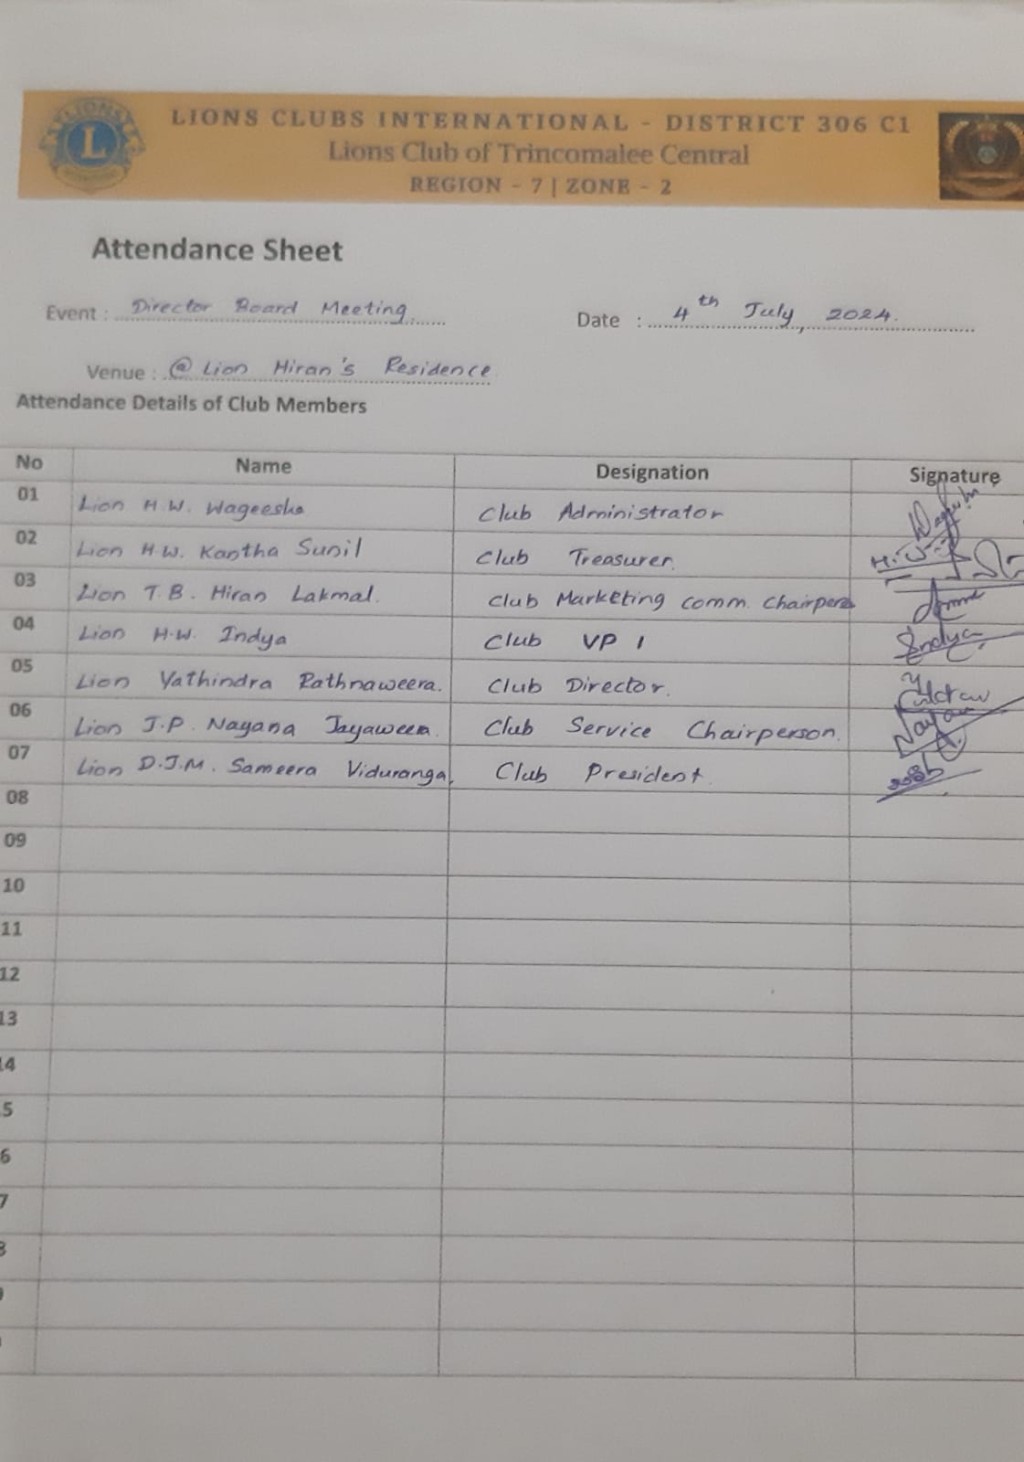 LIONS CLUBS INTERNATIONAL - DISTRICT 306 C1
Lions Club of Trincomalee Central
REGION - 7 | ZONE - 2
LIONS
L
Attendance Sheet
Event : Director Board Meeting.
Date : 4th July, 2024.
Venue : @ Lion Hiran's Residence
Attendance Details of Club Members
No Name Designation Signature
01 Lion H.W. Wageesha Club Administrator
02 Lion H.W. Kantha Sunil Club Treasurer.
03 Lion T.B. Hiran Lakmal. Club Marketing comm. Chairpers
04 Lion H.W. Indya Club VP 1 Indya
05 Lion Yathindra Rathnaweera. Club Director.
06 Lion J.P. Nayana Jayaweera. Club Service Chairperson. Nayana
07 Lion D.J.M. Sameera Viduranga, Club President.
08
09
10
11
12
13
14
5
6
7
8
9